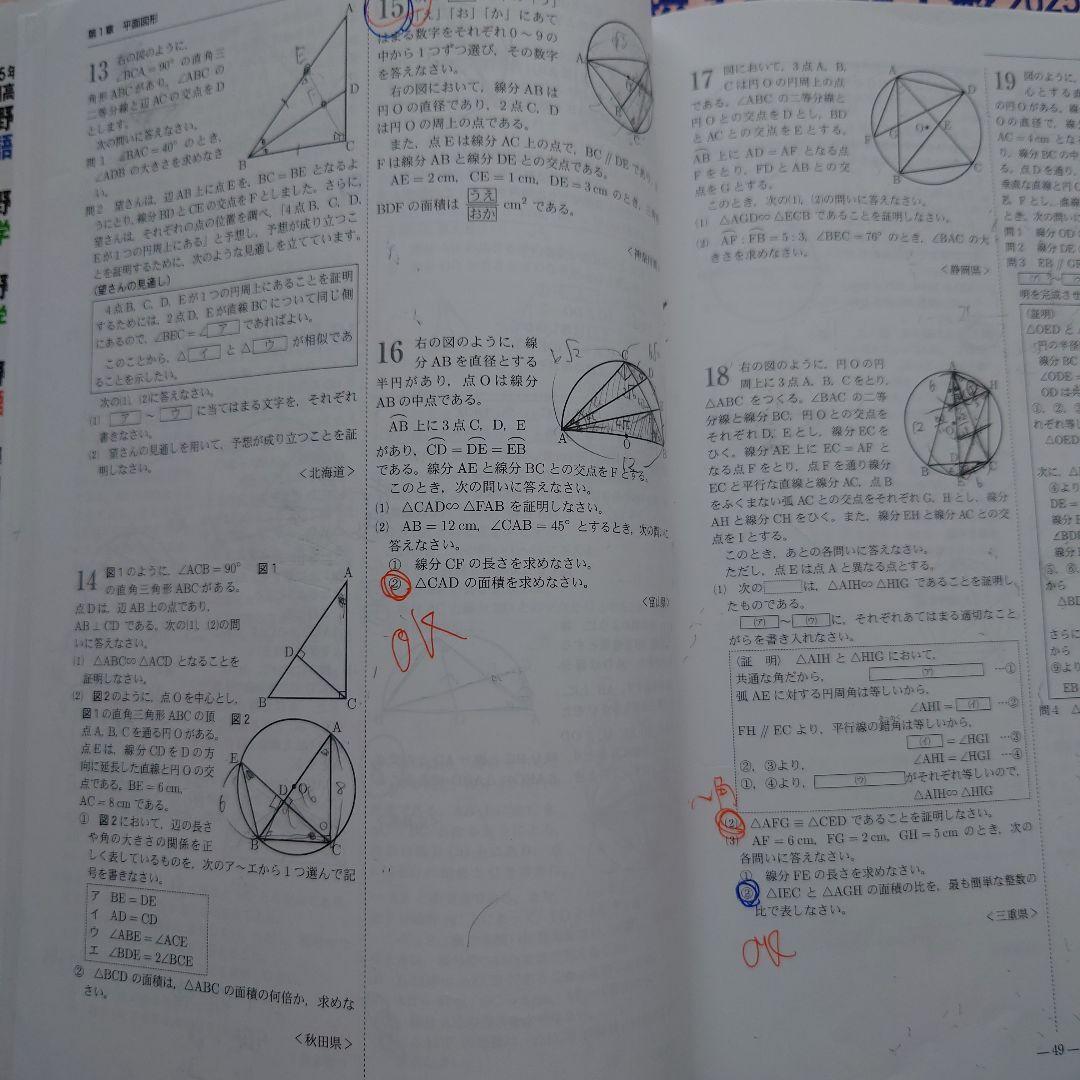 第1章 平面図形
13 右の図のように,
∠BCA=90°の直角三
角形ABCがあり, ∠ABCの
二等分線と辺ACの交点をD
とします。
次の問いに答えなさい。
問1 ∠BAC=40°のとき,
∠ADBの大きさを求めなさ
い。
問2 望さんは, 辺AB上に点Eを, BC=BEとなるよ
うにとり, 線分BDとCEの交点をFとしました。さらに,
望さんは, それぞれの点の位置を調べ, 「4点B, C, D,
Eが1つの円周上にある」と予想し, 予想が成り立つこ
とを証明するために, 次のような見通しを立てています。
(望さんの見通し)
4点B, C, D, Eが1つの円周上にあることを証明
するためには, 2点D, Eが直線BCについて同じ側
にあるので, ∠BEC=∠ ア であればよい。
このことから, △ イ と△ ウ が相似であ
ることを示したい。
次の(1), (2)に答えなさい。
(1) ア ~ ウ に当てはまる文字を, それぞれ
書きなさい。
(2) 望さんの見通しを用いて, 予想が成り立つことを証
明しなさい。
<北海道>
14 図1のように, ∠ACB=90° 図1
の直角三角形ABCがある。
点Dは, 辺AB上の点であり,
AB⊥CDである。次の(1), (2)の問
いに答えなさい。
(1) △ABC∽△ACDとなることを
証明しなさい。
(2) 図2のように, 点Oを中心とし,
図1の直角三角形ABCの頂 図2
点A, B, Cを通る円Oがある。
点Eは, 線分CDをDの方
向に延長した直線と円Oの交
点である。BE=6cm,
AC=8cmである。
① 図2において, 辺の長さ
や角の大きさの関係を正
しく表しているものを, 次のア~エから1つ選んで記
号を書きなさい。
ア BE=DE
イ AD=CD
ウ ∠ABE=∠ACE
エ ∠BDE=2∠BCE
② △BCDの面積は, △ABCの面積の何倍か, 求めな
さい。
<秋田県>
15
「え」「お」「か」にあて
はまる数字をそれぞれ0~9の
中から1つずつ選び, その数字
を答えなさい。
右の図において, 線分ABは
円Oの直径であり, 2点C, D
は円Oの周上の点である。
また, 点Eは線分AC上の点で, BC∥DEであり,
Fは線分ABと線分DEとの交点である。
AE=2cm, CE=1cm, DE=3cmのとき, 三角形
BDFの面積は うえ/おか cm²である。
16 右の図のように, 線
分ABを直径とする
半円があり, 点Oは線分
ABの中点である。
AB上に3点C, D, E
があり, CD=DE=EB
である。線分AEと線分BCとの交点をFとする。
このとき, 次の問いに答えなさい。
(1) △CAD∽△FABを証明しなさい。
(2) AB=12cm, ∠CAB=45°とするとき, 次の問いに
答えなさい。
① 線分CFの長さを求めなさい。
② △CADの面積を求めなさい。
<富山県>
OK
17 図において, 3点A, B,
Cは円Oの円周上の点
である。∠ABCの二等分線と
円Oとの交点をDとし, BD
とACとの交点をEとする。
AB上にAD=AFとなる点
Fをとり, FDとABとの交
点をGとする。
このとき, 次の(1), (2)の問いに答えなさい。
(1) △AGD∽△ECBであることを証明しなさい。
(2) AF:FB=5:3, ∠BEC=76°のとき, ∠BACの大
きさを求めなさい。
<静岡県>
18 右の図のように, 円Oの円
周上に3点A, B, Cをとり,
△ABCをつくる。∠BACの二等
分線と線分BC, 円Oとの交点を
それぞれD, Eとし, 線分ECを
ひく。線分AE上にEC=AFと
なる点Fをとり, 点Fを通り線分
ECと平行な直線と線分AC, 点B
をふくまない弧ACとの交点をそれぞれG, Hとし, 線分
AHと線分CHをひく。また, 線分EHと線分ACとの交
点をIとする。
このとき, あとの各問いに答えなさい。
ただし, 点Eは点Aと異なる点とする。
(1) 次の は, △AIH∽△HIGであることを証明し
たものである。
(ア) ~ (ウ) に, それぞれあてはまる適切なこと
がらを書き入れなさい。
(証 明) △AIHと△HIGにおいて,
共通な角だから, (ア) …①
弧AEに対する円周角は等しいから,
∠AHI= (イ) …②
FH∥ECより, 平行線の錯角は等しいから,
(イ) =∠HGI …③
②, ③より, ∠AHI=∠HGI …④
①, ④より, (ウ) がそれぞれ等しいので,
△AIH∽△HIG
(2) △AFG≡△CEDであることを証明しなさい。
(3) AF=6cm, FG=2cm, GH=5cmのとき, 次の
各問いに答えなさい。
① 線分FEの長さを求めなさい。
② △IECと△AGHの面積の比を, 最も簡単な整数の
比で表しなさい。
<三重県>
OK
19 図のように,
の円Oがある。
Oの直径で, 線
AC=4cmとな
り, 線分BCの中
る。点Dを通り,
垂直な直線と円O
E, Fとし, 直線
とき, 次の問いに
問1 線分OD
問2 線分DE
問3 EB∥GF
明を完成させ
(証明)
△OEDと△
円の半径
線分BC
∠ODE=
ODは
①, ②,
れぞれ等し
△OED
次に, △
④より
DE=
線分B
∠BD
線分
⑤, ⑥,
から
△BD
さらに
から
⑨より
EB
問4 △
―49―